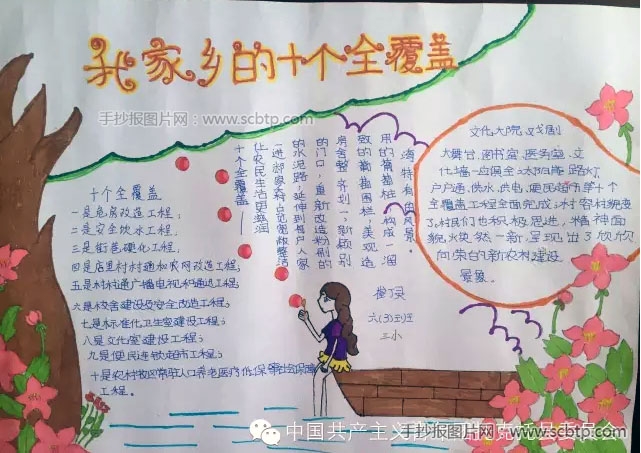 我家乡的十个全覆盖
手抄报图片网:www.scbtp.com
十个全覆盖
一是危房改造工程;
二是安全饮水工程;
三是街巷硬化工程;
四是店里村村通和农网改造工程;
五是村村通广播电视和通迅工程;
六是校舍建设及安全改造工程;
七是标准化卫生室建设工程;
八是文化室建设工程;
九是便民连锁超市工程;
十是农村牧区常驻人口养老医疗低保等社会保障
工程。
湾特有的风景。
用的葡萄桩,构成一个
致的葡萄围栏,美观适
房舍整齐划一,新颖别
的门口,重新改造粉刷的
的水泥路,延伸到每户人家
进
让农民生活更滋润
十个全覆盖——
文化大院,戏剧
大舞台,图书室,医务室,文
化墙一应俱全,太阳能路灯,
户户通,供水,供电,便民超市等十个
全覆盖工程全面完成,村容村貌变
了,村民们也积极思进,精神面
貌焕然一新,呈现出了欣欣
向荣的新农村建设
景象。
六(3)班
三小
中国共产主义
手抄报图片网:www.scbtp.com